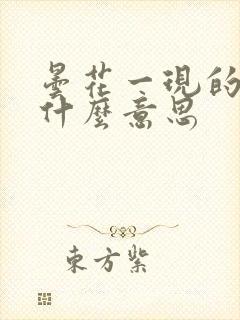 曇花一現的
什麼意思
東方紫